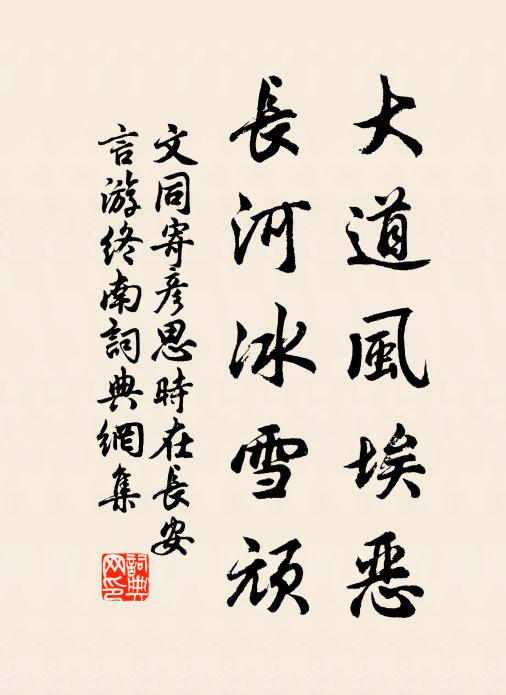 大道風埃恶
長河冰雪頑
文同寄彦思時在長安
言游终南詞典網集
詞典
网印